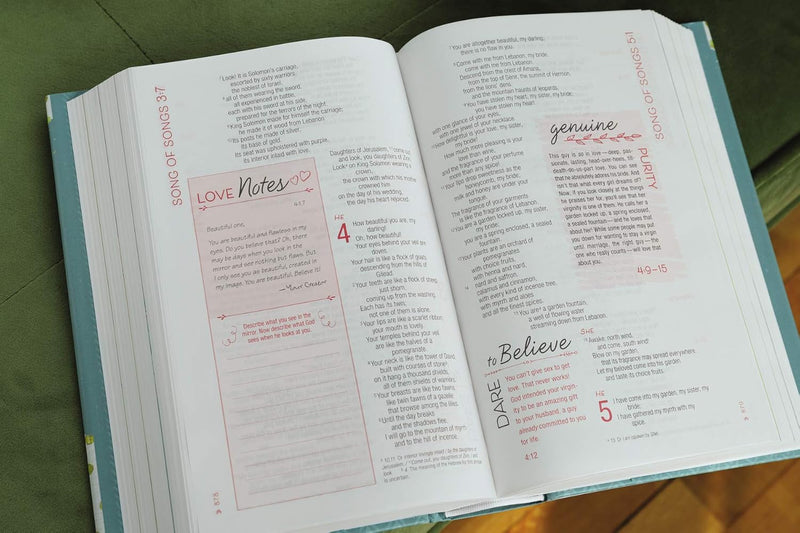 SONG OF SONGS 3:7
7 Look! It is Solomon's carriage,
escorted by sixty warriors,
the noblest of Israel,
8 all of them wearing the sword,
all experienced in battle,
each with his sword at his side,
prepared for the terrors of the night.
9 King Solomon made for himself the carriage;
he made it of wood from Lebanon.
10 Its posts he made of silver,
its base of gold.
Its seat was upholstered with purple,
its interior inlaid with love.
LOVE Notes
4:1,7
Beautiful one,
You are beautiful and flawless in my
eyes. Do you believe that? Oh, there
may be days when you look in the
mirror and see nothing but flaws. But
I only see you as beautiful, created in
my image. You are beautiful. Believe it!
—Your Creator
Describe what you see in the
mirror. Now describe what God
sees when he looks at you.
878
Daughters of Jerusalem, 11 come out
and look, you daughters of Zion.
Look on King Solomon wearing a
crown,
the crown with which his mother
crowned him
on the day of his wedding,
the day his heart rejoiced.
HE
4
How beautiful you are, my
darling!
Oh, how beautiful!
Your eyes behind your veil are
doves.
Your hair is like a flock of goats
descending from the hills of
Gilead.
2 Your teeth are like a flock of sheep
just shorn,
coming up from the washing.
Each has its twin;
not one of them is alone.
3 Your lips are like a scarlet ribbon;
your mouth is lovely.
Your temples behind your veil
are like the halves of a
pomegranate.
4 Your neck is like the tower of David,
built with courses of stone;
on it hang a thousand shields,
all of them shields of warriors.
5 Your breasts are like two fawns,
like twin fawns of a gazelle
that browse among the lilies.
6 Until the day breaks
and the shadows flee,
I will go to the mountain of myrrh
and to the hill of incense.
a 10,11 Or interior lovingly inlaid / by the daughters of
Jerusalem. / 11 Come out, you daughters of Zion, / and
look b 4 The meaning of the Hebrew for this phrase
is uncertain.
7 You are altogether beautiful, my darling;
there is no flaw in you.
8 Come with me from Lebanon, my bride,
come with me from Lebanon.
Descend from the crest of Amana,
from the top of Senir, the summit of Hermon,
from the lions' dens
and the mountain haunts of leopards.
9 You have stolen my heart, my sister, my bride;
you have stolen my heart
with one glance of your eyes,
with one jewel of your necklace.
10 How delightful is your love, my sister,
my bride!
How much more pleasing is your
love than wine,
and the fragrance of your perfume
more than any spice!
11 Your lips drop sweetness as the
honeycomb, my bride;
milk and honey are under your
tongue.
The fragrance of your garments
is like the fragrance of Lebanon.
12 You are a garden locked up, my sister,
my bride;
you are a spring enclosed, a sealed
fountain.
13 Your plants are an orchard of
pomegranates
with choice fruits,
with henna and nard,
14 nard and saffron,
calamus and cinnamon,
with every kind of incense tree,
with myrrh and aloes
and all the finest spices.
15 You are a garden fountain,
a well of flowing water
streaming down from Lebanon.
SHE
16 Awake, north wind,
and come, south wind!
Blow on my garden,
that its fragrance may spread everywhere.
Let my beloved come into his garden
and taste its choice fruits.
HE
5
I have come into my garden, my sister, my
bride;
I have gathered my myrrh with my
spice.
a 15 Or I am (spoken by She)
SONG OF SONGS 5:1
genuine
PURITY
This guy is so in love—deep, pas-
sionate, lasting, head-over-heels, till-
death-do-us-part love. You can see
that he absolutely adores his bride. And
isn't that what every girl dreams of?
Now, if you look closely at the things
he praises her for, you'll see that her
virginity is one of them. He calls her a
garden locked up, a spring enclosed,
a sealed fountain—and he loves that
about her! While some people may put
you down for wanting to stay a virgin
until marriage, the right guy—the
one who really counts—will love that
about you.
4:9–15
DARE
to Believe
You can't give sex to get
love. That never works!
God intended your virgin-
ity to be an amazing gift
to your husband, a guy
already committed to you
for life.
4:12
879